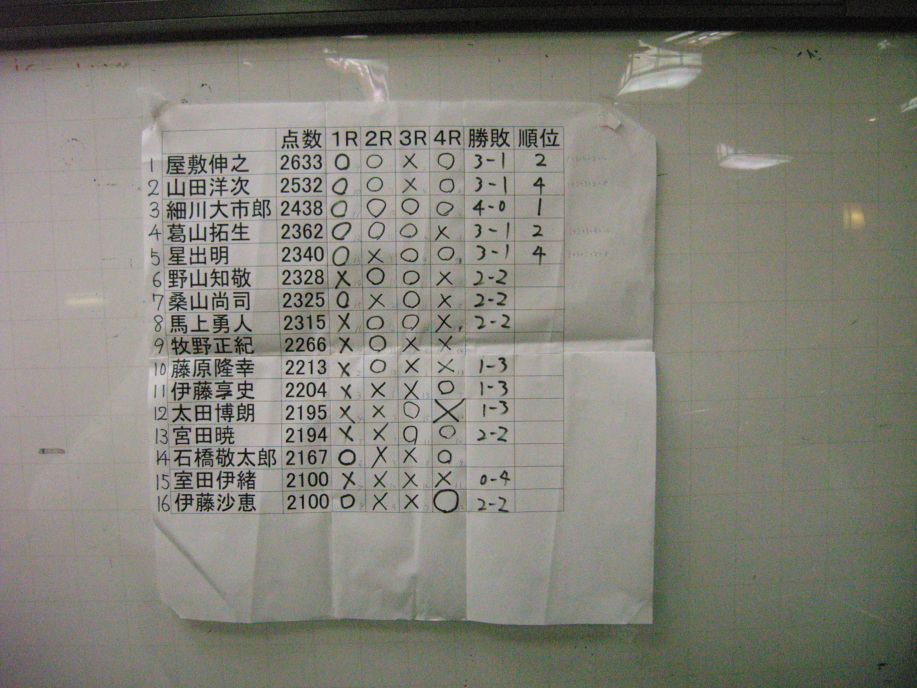 点数 1R 2R 3R 4R 勝敗 順位
1 屋敷伸之 2633 ○ ○ × ○ 3-1 2
2 山田洋次 2532 ○ ○ × ○ 3-1 4
3 細川大市郎 2438 ○ ○ ○ ○ 4-0 1
4 葛山拓生 2362 ○ ○ ○ × 3-1 2
5 星出明 2340 ○ × ○ ○ 3-1 4
6 野山知敬 2328 × ○ ○ × 2-2
7 桑山尚司 2325 ○ × ○ × 2-2
8 馬上勇人 2315 × ○ ○ × 2-2
9 牧野正紀 2266 × ○ × ×
10 藤原隆幸 2213 × ○ × × 1-3
11 伊藤享史 2204 × × × ○ 1-3
12 太田博朗 2195 × × ○ × 1-3
13 宮田暁 2194 × × ○ ○ 2-2
14 石橋敬太郎 2167 ○ × × ○
15 室田伊緒 2100 × × × × 0-4
16 伊藤沙恵 2100 ○ × × ○ 2-2